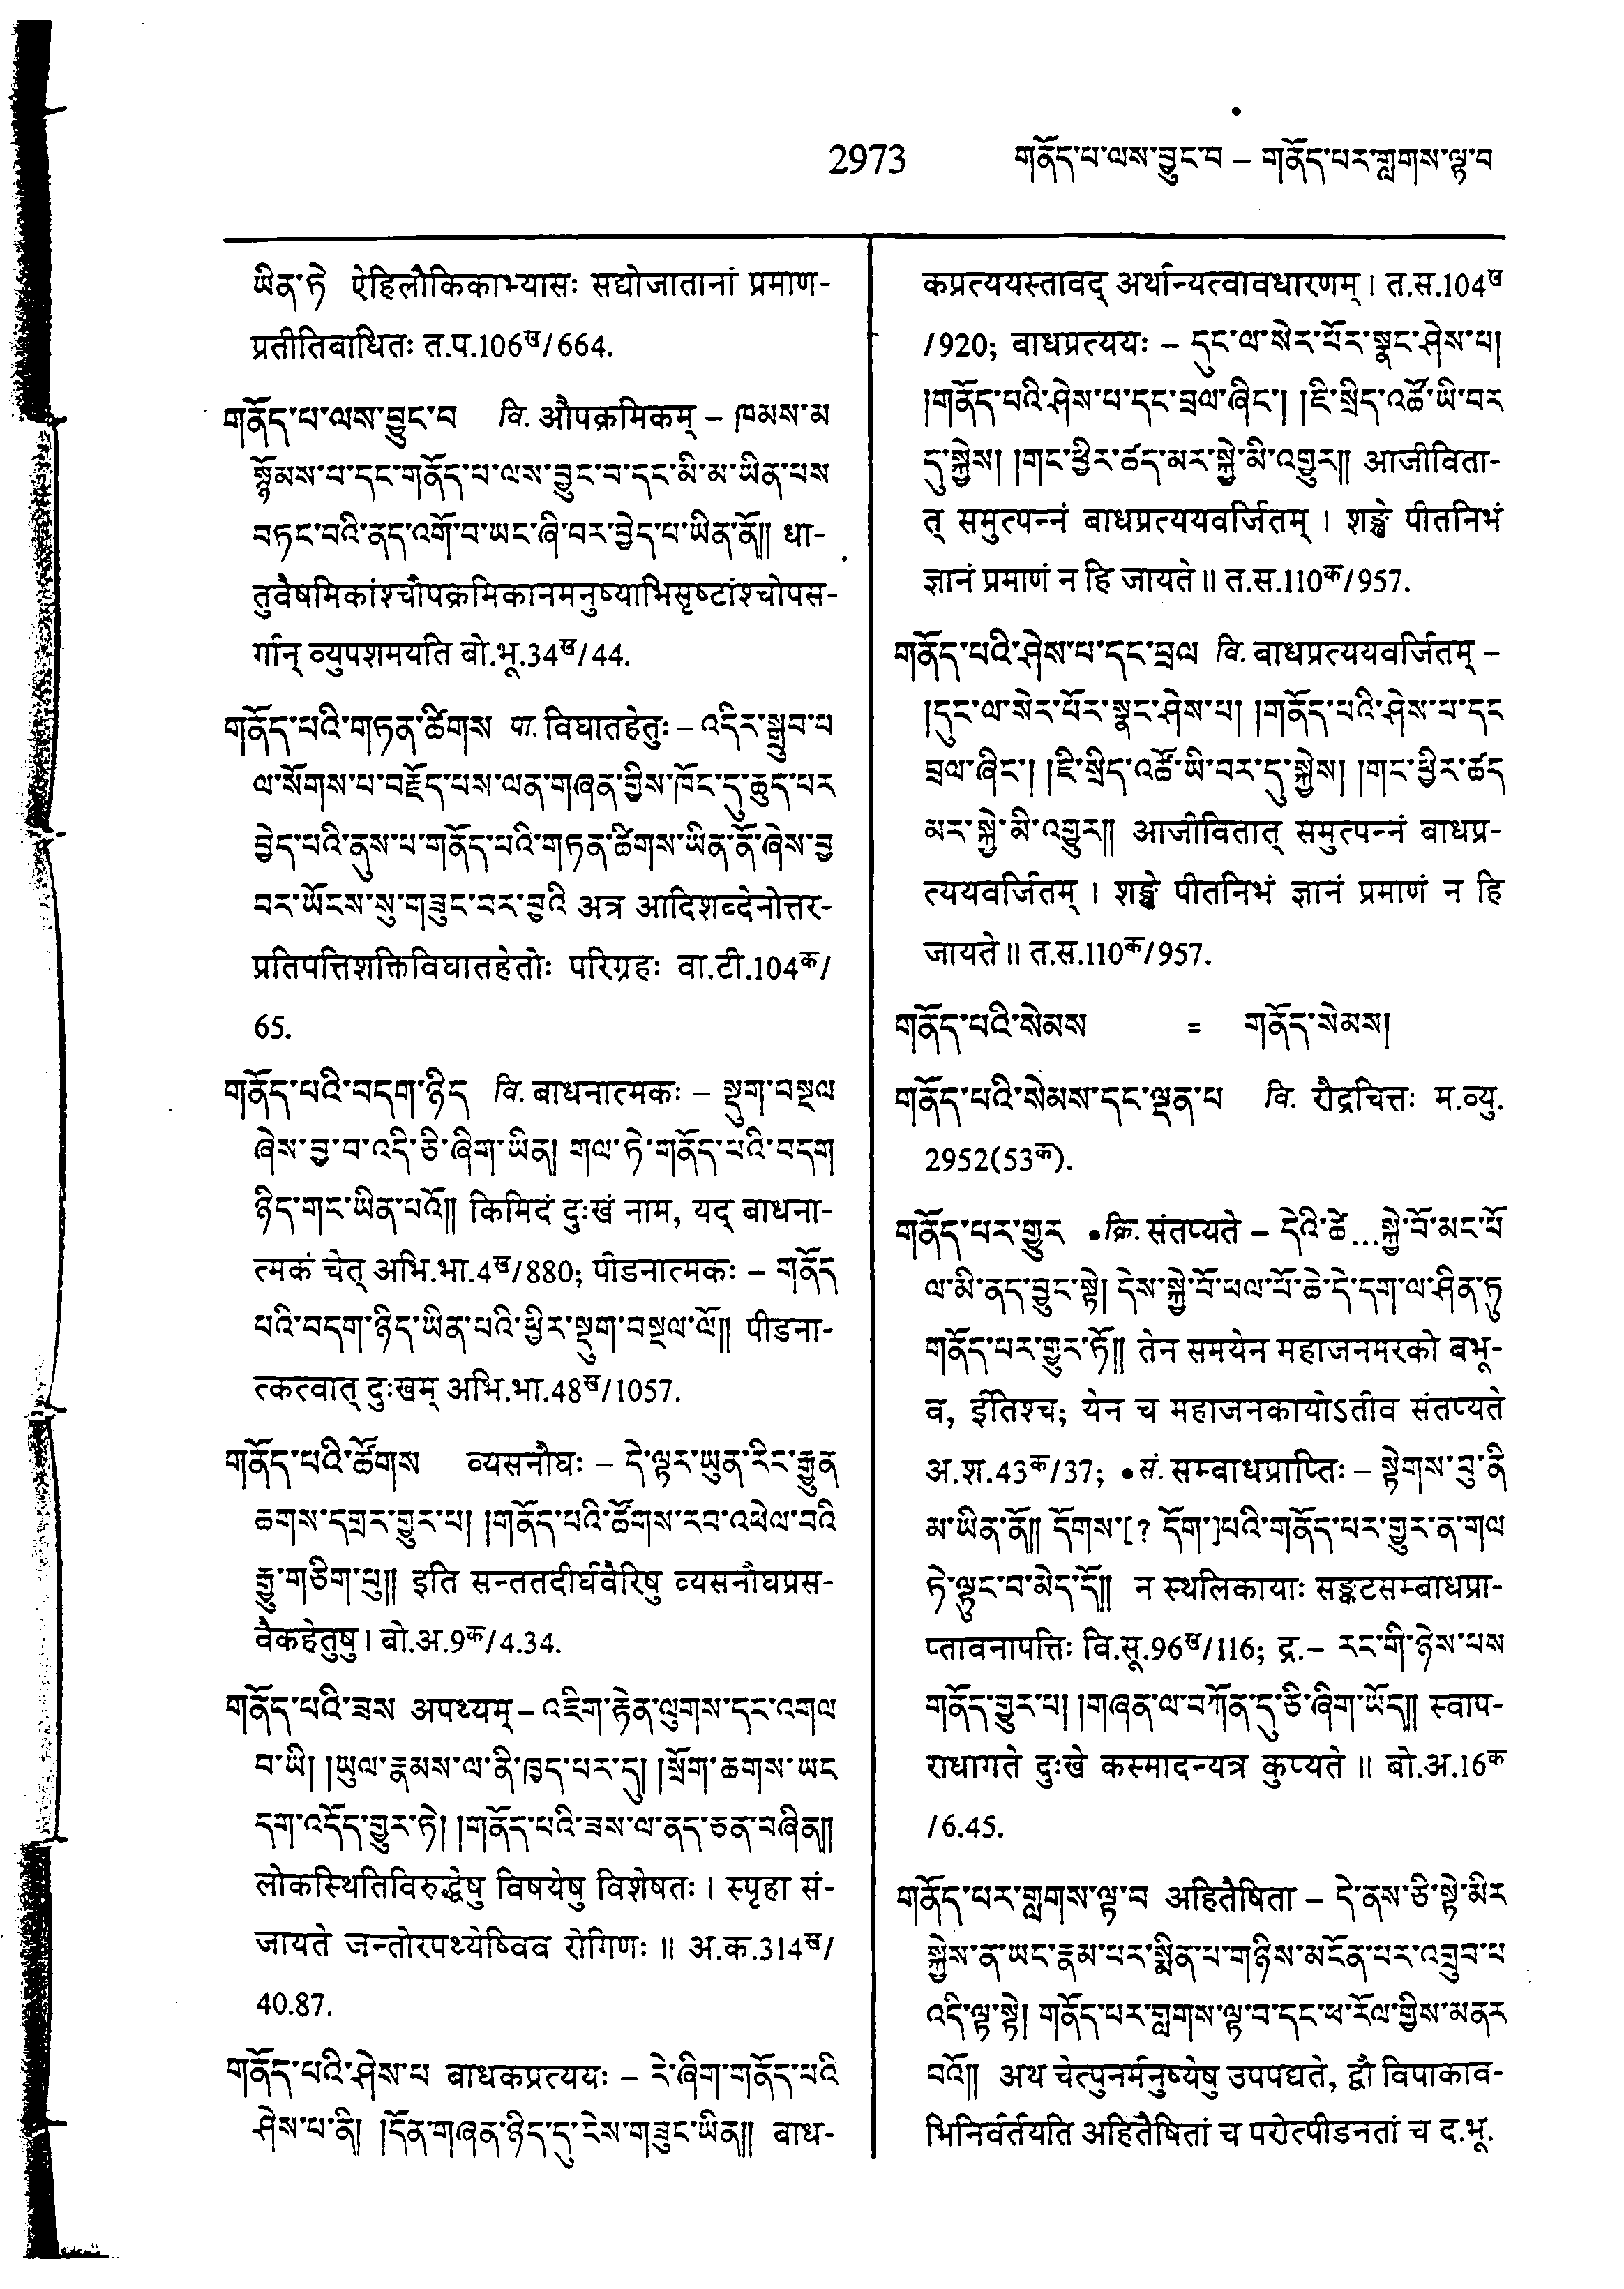 2973 གནོད་པ་ལས་བྱུང་བ – གནོད་པར་གླགས་ལྟ་བ
ཡིན་ཏེ ऐहिलौकिकाभ्यासः सद्योजातानां प्रमाण-
प्रतीतिबाधितः त.प.106ख/664.
གནོད་པ་ལས་བྱུང་བ वि. औपक्रमिकम् – ཁམས་མ
སྙོམས་པ་དང་གནོད་པ་ལས་བྱུང་བ་དང་མི་མ་ཡིན་པས
བཏང་བའི་ནད་འགོ་བ་ཡང་ཞི་བར་བྱེད་པ་ཡིན་ནོ།། धा-
तुवैषमिकांश्चौपक्रमिकानमनुष्याभिसृष्टांश्चोपस-
र्गान् व्युपशमयति बो.भू.34ख/44.
གནོད་པའི་གཏན་ཚིགས पा. विघातहेतुः – འདིར་སྒྲུབ་པ
ལ་སོགས་པ་བརྗོད་པས་ལན་གཞན་གྱིས་ཁོང་དུ་ཆུད་པར
བྱེད་པའི་ནུས་པ་གནོད་པའི་གཏན་ཚིགས་ཡིན་ནོ་ཞེས་བྱ
བར་ཡོངས་སུ་གཟུང་བར་བྱའི अत्र आदिशब्देनोत्तर-
प्रतिपत्तिशक्तिविघातहेतोः परिग्रहः वा.टी.104क/
65.
གནོད་པའི་བདག་ཉིད वि. बाधनात्मकः – སྡུག་བསྔལ
ཞེས་བྱ་བ་འདི་ཅི་ཞིག་ཡིན། གལ་ཏེ་གནོད་པའི་བདག
ཉིད་གང་ཡིན་པའོ།། किमिदं दुःखं नाम, यद् बाधना-
त्मकं चेत् अभि.भा.4ख/880; पीडनात्मकः – གནོད
པའི་བདག་ཉིད་ཡིན་པའི་ཕྱིར་སྡུག་བསྔལ་ལོ།། पीडना-
त्कत्वात् दुःखम् अभि.भा.48ख/1057.
གནོད་པའི་ཚོགས व्यसनौघः – དེ་ལྟར་ཡུན་རིང་རྒྱུན
ཆགས་དགྲར་གྱུར་པ། །གནོད་པའི་ཚོགས་རབ་འཕེལ་བའི
རྒྱུ་གཅིག་པུ།། इति सन्ततदीर्घवैरिषु व्यसनौघप्रस-
वैकहेतुषु। बो.अ.9क/4.34.
གནོད་པའི་ཟས अपथ्यम् – འཇིག་རྟེན་ལུགས་དང་འགལ
བ་ཡི། །ཡུལ་རྣམས་ལ་ནི་ཁྱད་པར་དུ། །སྲོག་ཆགས་ཡང
དག་འདོད་གྱུར་ཏེ། །གནོད་པའི་ཟས་ལ་ནད་ཅན་བཞིན།།
लोकस्थितिविरुद्धेषु विषयेषु विशेषतः। स्पृहा सं-
जायते जन्तोरपथ्येष्विव रोगिणः॥ अ.क.314ख/
40.87.
གནོད་པའི་ཤེས་པ बाधकप्रत्ययः – རེ་ཞིག་གནོད་པའི
ཤེས་པ་ནི། །དོན་གཞན་ཉིད་དུ་ངེས་གཟུང་ཡིན།། बाध-
कप्रत्ययस्तावद् अर्थान्यत्वावधारणम्। त.स.104ख
/920; बाधप्रत्ययः – དུང་ལ་སེར་པོར་སྣང་ཤེས་པ།
།གནོད་པའི་ཤེས་པ་དང་བྲལ་ཞིང་། །ཇི་སྲིད་འཚོ་ཡི་བར
དུ་སྐྱེས། །གང་ཕྱིར་ཚད་མར་སྐྱེ་མི་འགྱུར།། आजीविता-
त् समुत्पन्नं बाधप्रत्ययवर्जितम्। शङ्खे पीतनिभं
ज्ञानं प्रमाणं न हि जायते॥ त.स.110क/957.
གནོད་པའི་ཤེས་པ་དང་བྲལ वि. बाधप्रत्ययवर्जितम् –
།དུང་ལ་སེར་པོར་སྣང་ཤེས་པ། །གནོད་པའི་ཤེས་པ་དང
བྲལ་ཞིང་། །ཇི་སྲིད་འཚོ་ཡི་བར་དུ་སྐྱེས། །གང་ཕྱིར་ཚད
མར་སྐྱེ་མི་འགྱུར།། आजीवितात् समुत्पन्नं बाधप्र-
त्ययवर्जितम्। शङ्खे पीतनिभं ज्ञानं प्रमाणं न हि
जायते॥ त.स.110क/957.
གནོད་པའི་སེམས = གནོད་སེམས།
གནོད་པའི་སེམས་དང་ལྡན་པ वि. रौद्रचित्तः म.व्यु.
2952(53क).
གནོད་པར་གྱུར •क्रि. संतप्यते – དེའི་ཚེ...སྐྱེ་བོ་མང་པོ
ལ་མི་ནད་བྱུང་སྟེ། དེས་སྐྱེ་བོ་ཕལ་པོ་ཆེ་དེ་དག་ལ་ཤིན་ཏུ
གནོད་པར་གྱུར་ཏོ།། तेन समयेन महाजनमरको बभू-
व, ईतिश्च; येन च महाजनकायोऽतीव संतप्यते
अ.श.43क/37; •सं. सम्बाधप्राप्तिः – སྟེགས་བུ་ནི
མ་ཡིན་ནོ།། དོགས་[? དོག་]པའི་གནོད་པར་གྱུར་ན་གལ
ཏེ་ལྟུང་བ་མེད་དོ།། न स्थलिकायाः सङ्कटसम्बाधप्रा-
प्तावनापत्तिः वि.सू.96ख/116; द्र.– རང་གི་ཉེས་པས
གནོད་གྱུར་པ། །གཞན་ལ་བཀོན་དུ་ཅི་ཞིག་ཡོད།། स्वाप-
राधागते दुःखे कस्मादन्यत्र कुप्यते॥ बो.अ.16क
/6.45.
གནོད་པར་གླགས་ལྟ་བ अहितैषिता – དེ་ནས་ཅི་སྟེ་མིར
སྐྱེས་ན་ཡང་རྣམ་པར་སྨིན་པ་གཉིས་མངོན་པར་འགྲུབ་པ
འདི་ལྟ་སྟེ། གནོད་པར་གླགས་ལྟ་བ་དང་ཕ་རོལ་གྱིས་མནར
བའོ།། अथ चेत्पुनर्मनुष्येषु उपपद्यते, द्वौ विपाकाव-
भिनिर्वर्तयति अहितैषितां च परोत्पीडनतां च द.भू.